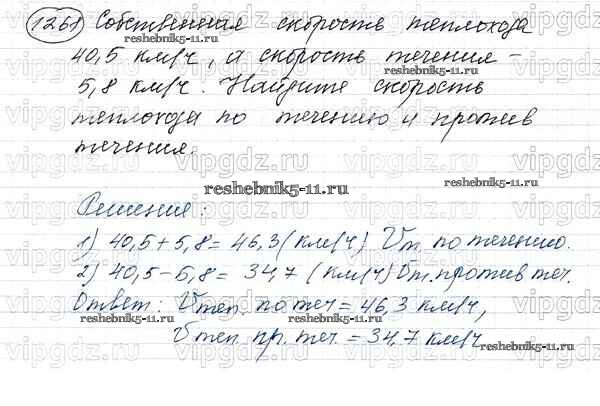 1261) Собственная скорость теплохода
40,5 км/ч, а скорость течения –
5,8 км/ч. Найдите скорость
теплохода по течению и против
течения.
Решение:
1) 40,5 + 5,8 = 46,3 (км/ч) Vт. по течению.
2) 40,5 – 5,8 = 34,7 (км/ч) Vт. против теч.
Ответ: Vтеп. по теч = 46,3 км/ч,
Vтеп. пр. теч. = 34,7 км/ч
reshebnik5-11.ru
vipgdz.ru